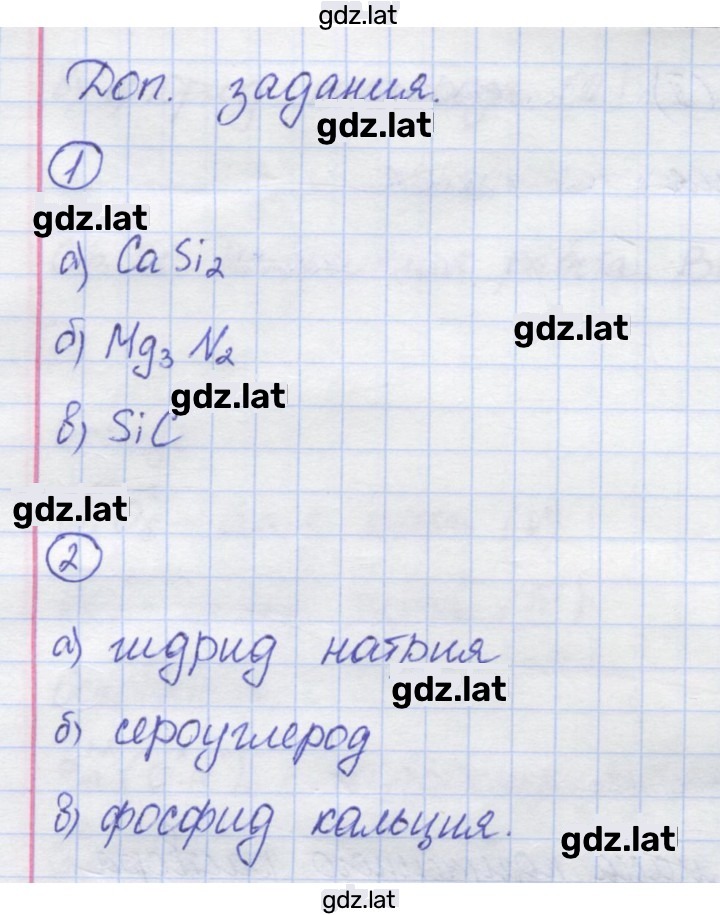 gdz.lat
Доп. задания.
gdz.lat
1
gdz.lat
а) CaSi2
gdz.lat
б) Mg3N2
gdz.lat
в) SiC
gdz.lat
2
а) гидрид натрия
gdz.lat
б) сероуглерод
в) фосфид кальция.
gdz.lat
gdz.lat